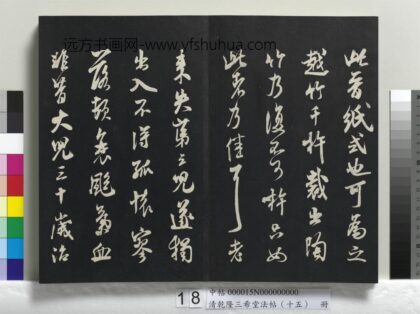 远方书画网-www.yfshuhua.com
此晋纸式也可为之
越竹千杵裁出陶
竹乃复不可杵只如
此者乃佳耳老
来失第三儿遂独
出入不得孤怀寥
落顿衰飒气血
非昔大儿三十岁治
18
中帖 000015N000000000
清乾隆三希堂法帖（十五） 册